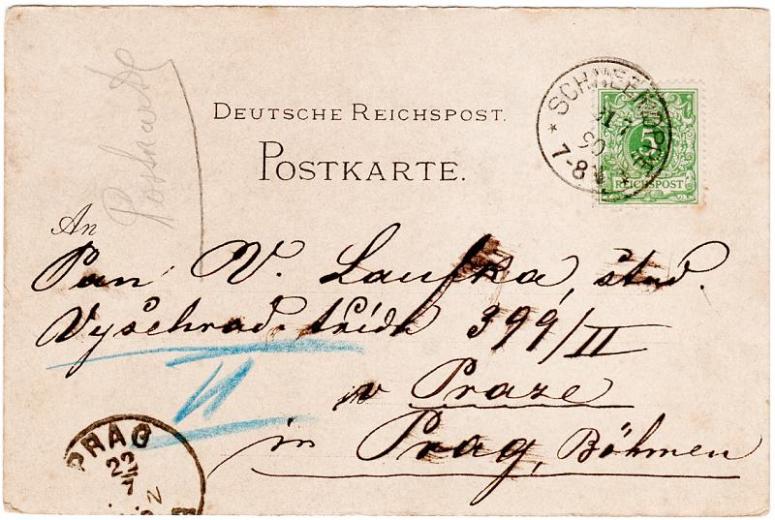 Postkarte
DEUTSCHE REICHSPOST.
POSTKARTE.
5
REICHSPOST
7-8
An
Pan V. Laufka, stud.
Vyschrad. třída 399/II
v Praze
II
in Prag, Böhmen
PRAG
22
7